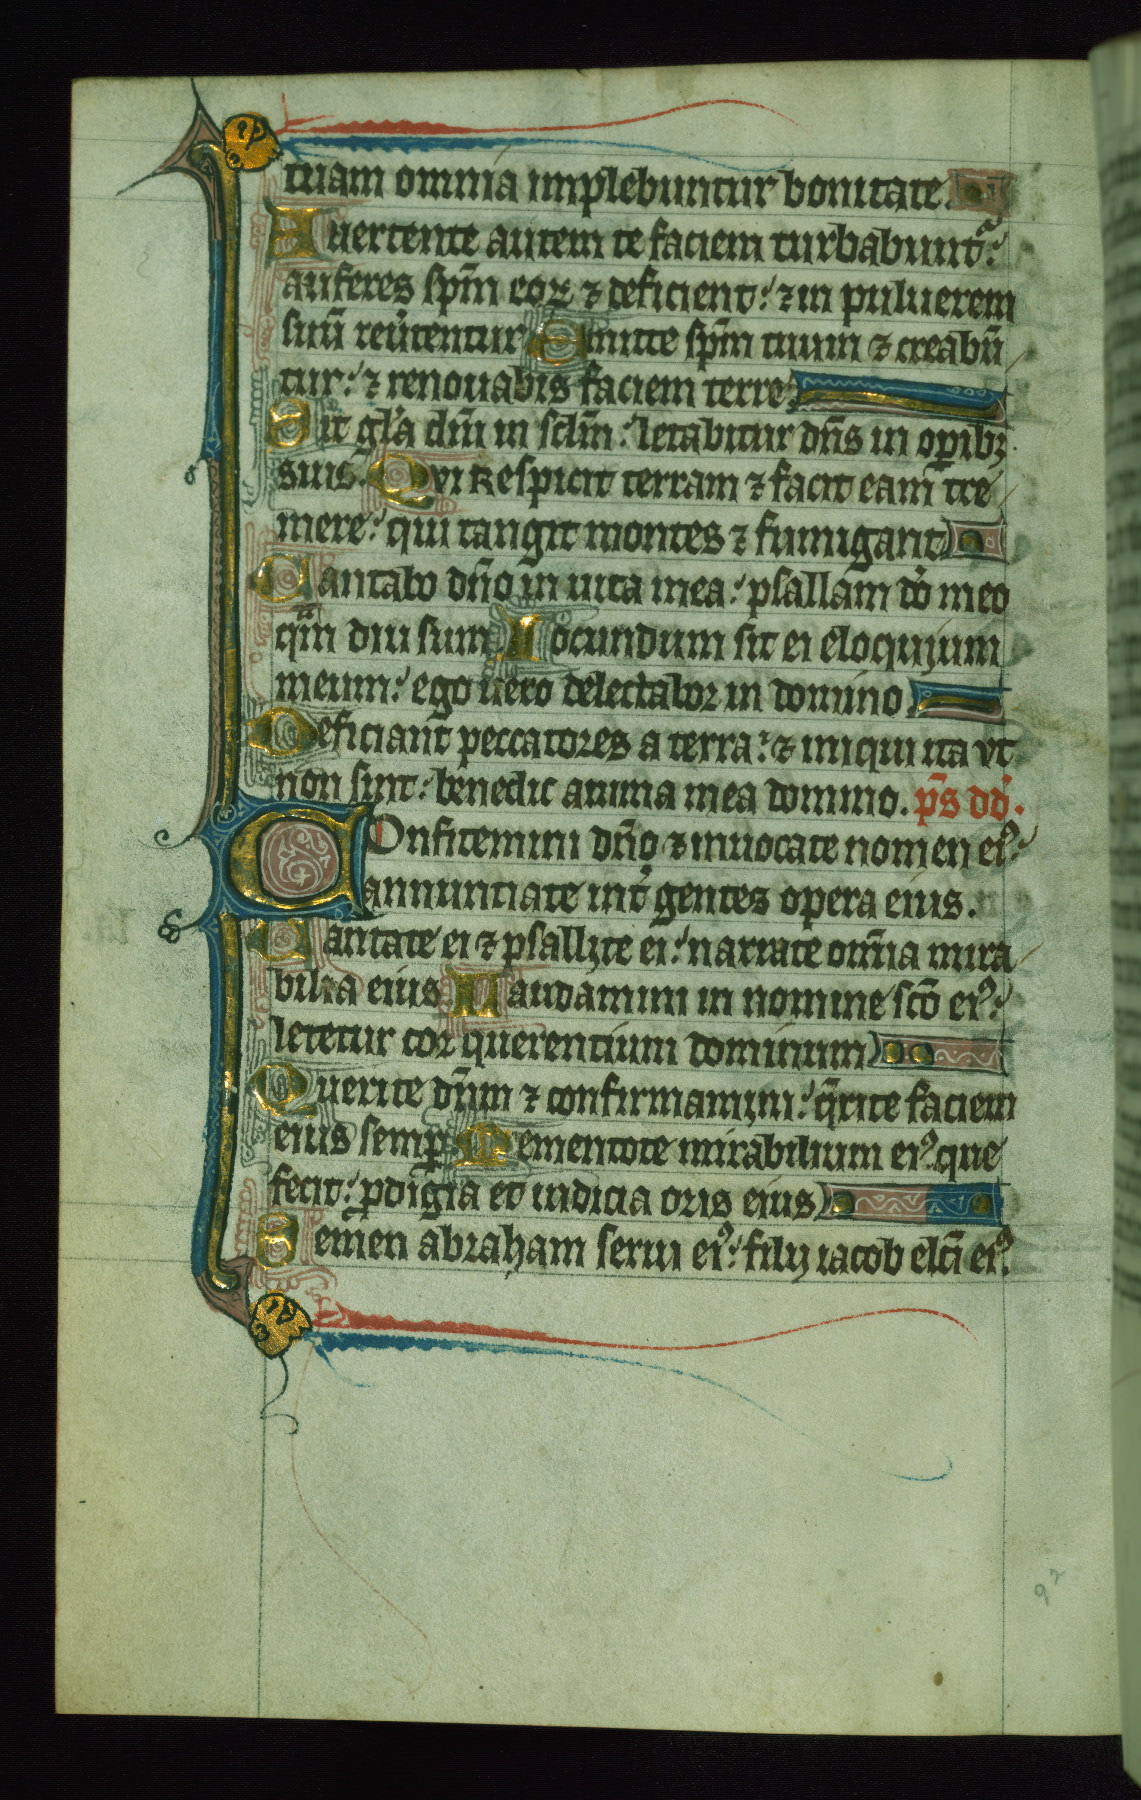 tuam omnia implebuntur bonitate.
Auertente autem te faciem turbabunt᷑:
auferes sp̄m eoꝝ ⁊ deficient: ⁊ in puluerem
suū reu̓tentur Emitte sp̄m tuum ⁊ creabū
tur: ⁊ renouabis faciem terre
Sit gl̄a dn̄i in sclm̄: letabitur dn̄s in oꝑibꝫ
suis. Qvi Respicit terram ⁊ facit eam tre
mere: qui tangit montes ⁊ fumigant
Cantabo dn̄o in uita mea: psallam do̓ meo
qm̄ diu sum Iocundum sit ei eloquium
meum: ego uero delectabor in domino
Deficiant peccatores a terra: ⁊ iniqui ita vt
non sint: benedic anima mea domino. p̄s dd̓.
COnfitemini dn̄o ⁊ inuocate nomen eiꝰ:
annunciate int̓ gentes opera eius.
Cantate ei ⁊ psallite ei: narrate om̄ia mira
bilia eius Laudamini in nomine sc̄o eiꝰ:
letetur cor querentium dominum
Querite dn̄m ⁊ confirmamini: q̄rite faciem
eius semꝑ Mementote mirabilium eiꝰ que
fecit: ꝓdigia et iudicia oris eius
Semen abraham serui eiꝰ: filij iacob elc̄i eiꝰ.
92